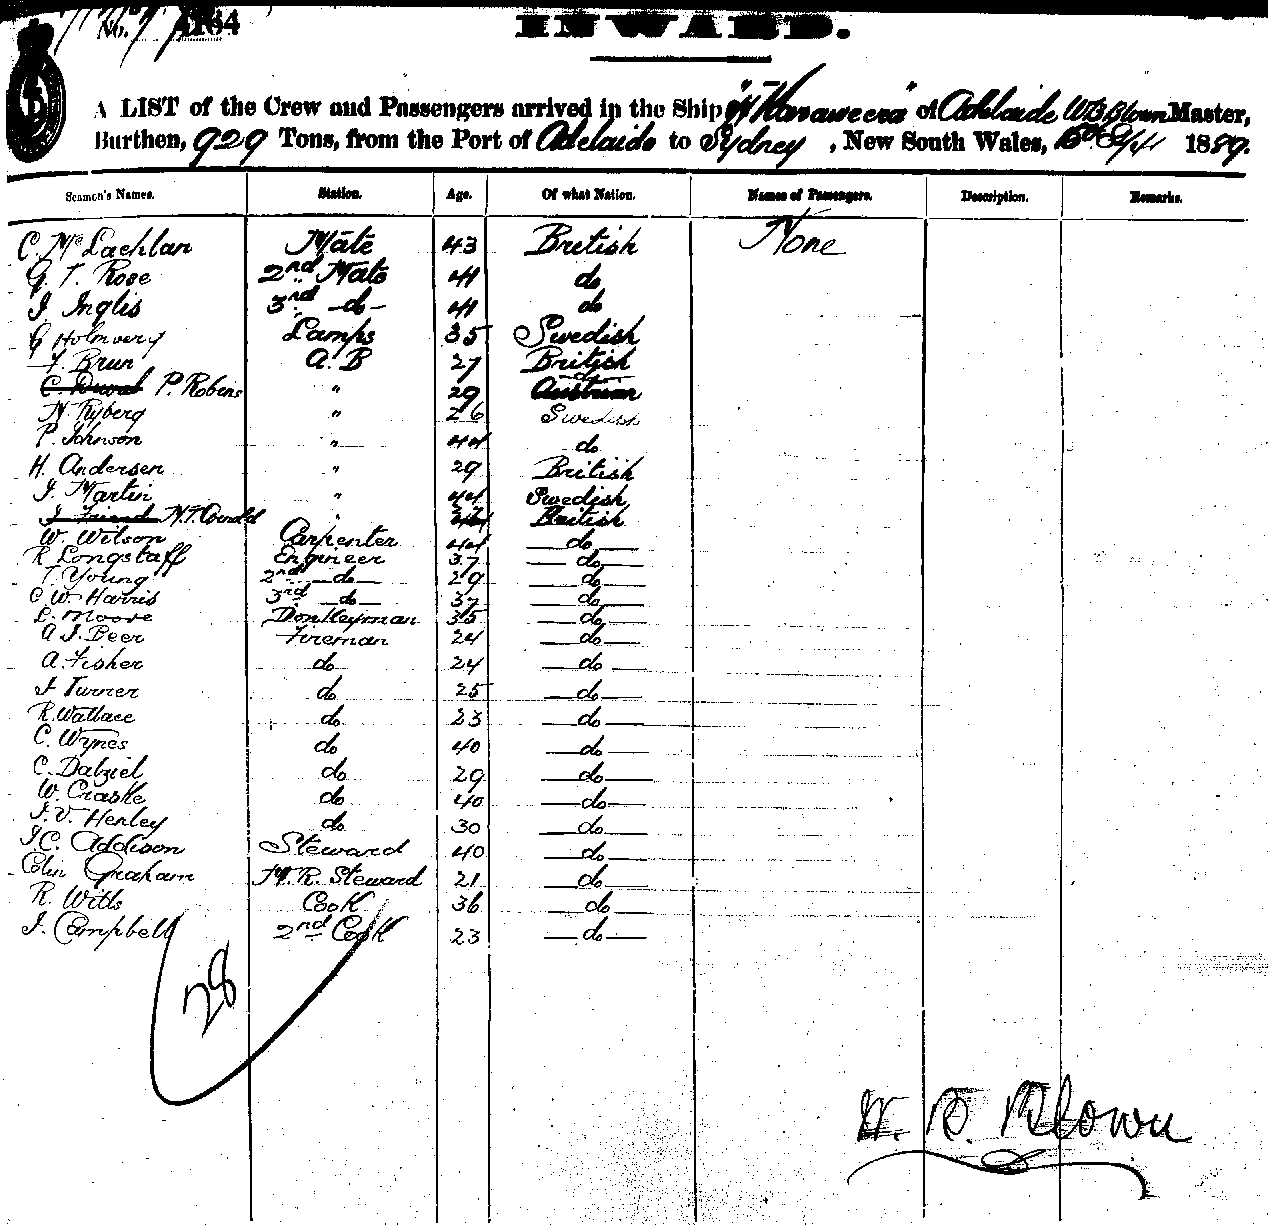 No. 4164
INWARD.
A LIST of the Crew and Passengers arrived in the Ship "Kanaweera" of Adelaide W B Blown Master,
Burthen, 929 Tons, from the Port of Adelaide to Sydney, New South Wales, 1889.
Seamen's Names. Station. Age. Of what Nation. Names of Passengers. Description. Remarks.
C. McLachlan Mate 43 British None
G. T. Rose 2nd Mate 41 do
J. Inglis 3rd do 41 do
G Holmverg Lamps 35 Swedish
F. Brun A. B 27 British
C. Duval P. Robens " 29 Austrian
N. Ryberg " 26 Swedish
P. Johnson " 44 do
H. Andersen " 29 British
J. Martin " 44 Swedish
J Friend " British
W. Wilson Carpenter 44 do
R Longstaff Engineer 37 do
T. Young 2nd do 29 do
C W. Harris 3rd do 37 do
L. Moore Donkeyman 35 do
A J. Beer Fireman 24 do
A. Fisher do 24 do
J Turner do 25 do
R. Wallace do 23 do
C. Wynes do 40 do
C. Dalziel do 29 do
W. Craske do 40 do
J. V. Henley do 30 do
J. C. Addison Steward 40 do
Colin Graham M. R. Steward 21 do
R. Witts Cook 36 do
J. Campbell 2nd Cook 23 do
28
W. B. Blown